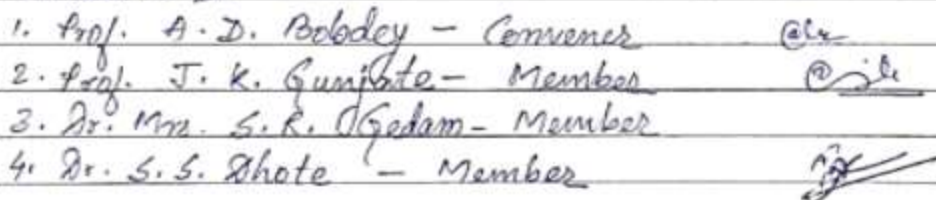 1. Prof. A. D. Bobdey - Convener
2. Prof. J. K. Gunjate - Member
3. Dr. Mrs. S. R. Gedam - Member
4. Dr. S. S. Dhote - Member